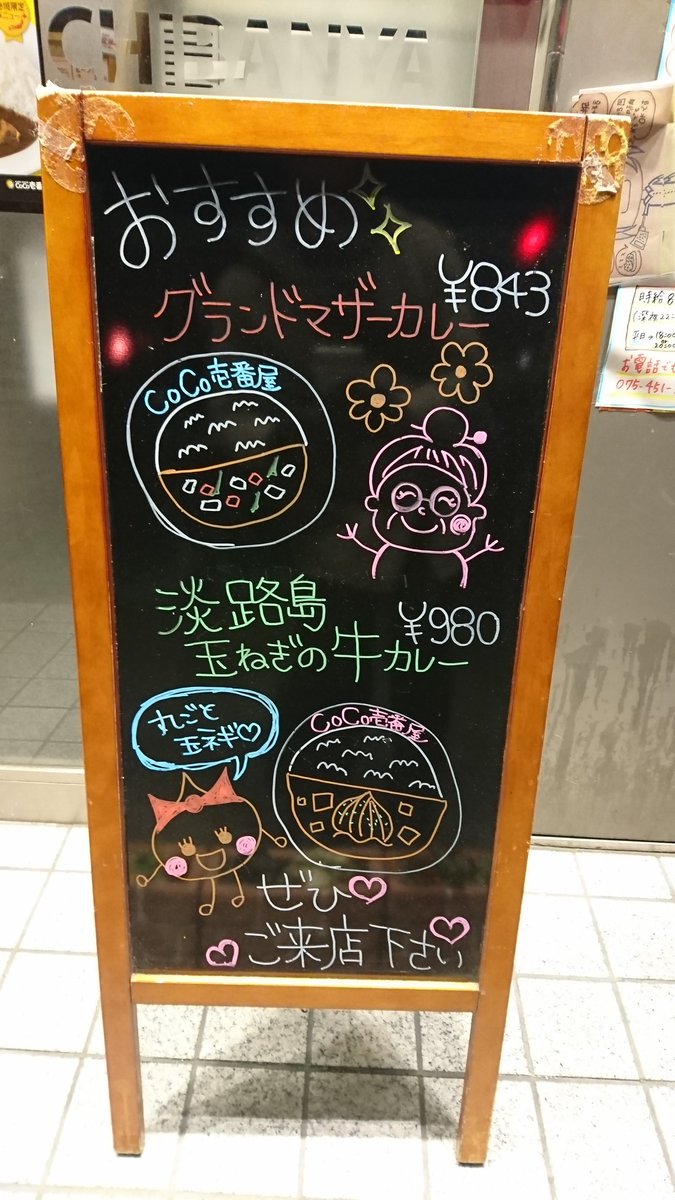 CHIBANYA
CoCo壱番
おすすめ
¥843
グランドマザーカレー
CoCo壱番屋
淡路島
¥980
玉ねぎの牛カレー
丸ごと
玉ネギ♡
CoCo壱番屋
ぜひ♡
♡ご来店下さい♡
時給8
(深夜22:
平日→18:00
20:00
お電話でも
075-451-